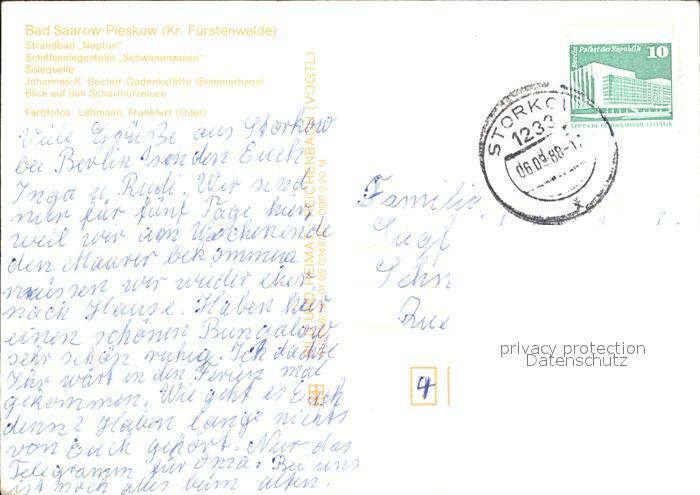 Bad Saarow-Pieskow (Kr. Fürstenwalde)
Strandbad „Neptun"
Schiffsanlegestelle „Schwanenwiese"
Solequelle
Johannes-R.-Becher-Gedenkstätte (Sommerhaus)
Blick auf den Scharmützelsee
Farbfotos: Lehmann, Frankfurt (Oder)
Viele Grüße aus Storkow
bei Berlin senden Euch
Inga u. Rudi. Wir sind
nur für fünf Tage hier
weil wir am Wochenende
den Maurer bekommen
müssen wir wieder eher
nach Hause. Haben hier
einen schönen Bungalow
sehr schön ruhig. Ich dachte
Ihr wärt in den Ferien mal
gekommen. Wie geht es Euch
denn? Haben lange nichts
von Euch gehört. Nur das
Telegramm für Oma. Bei uns
ist noch alles beim alten.
BILD UND HEIMAT REICHENBACH (VOGTL)
Berlin, Palast der Republik
10
DEUTSCHE DEMOKRATISCHE REPUBLIK
STORKOW
1233
06.09.88
Familie
4
privacy protection
Datenschutz